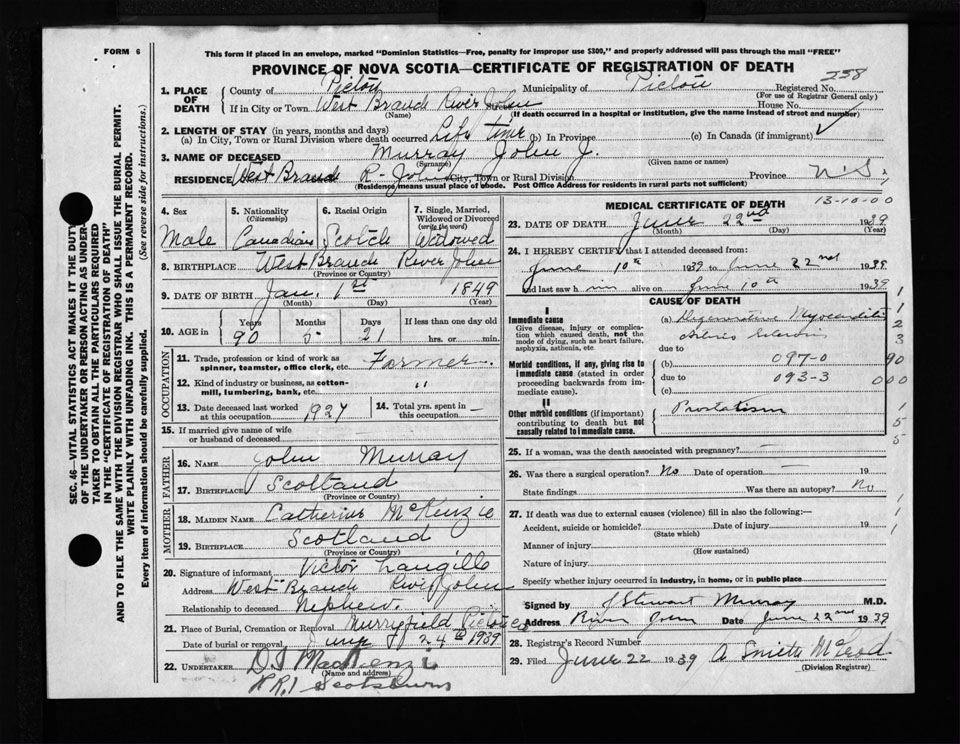 FORM 6
This form if placed in an envelope, marked "Dominion Statistics—Free, penalty for improper use $300," and properly addressed will pass through the mail "FREE"
PROVINCE OF NOVA SCOTIA—CERTIFICATE OF REGISTRATION OF DEATH
SEC. 46—VITAL STATISTICS ACT MAKES IT THE DUTY
OF THE UNDERTAKER OR PERSON ACTING AS UNDER-
TAKER TO OBTAIN ALL THE PARTICULARS REQUIRED
IN THE "CERTIFICATE OF REGISTRATION OF DEATH"
AND TO FILE THE SAME WITH THE DIVISION REGISTRAR WHO SHALL ISSUE THE BURIAL PERMIT.
WRITE PLAINLY WITH UNFADING INK. THIS IS A PERMANENT RECORD.
Every item of information should be carefully supplied. (See reverse side for instructions.)
1. PLACE OF DEATH
County of Pictou Municipality of Pictou Registered No. 258
(For use of Registrar General only)
If in City or Town West Branch River John Street House No.
(Name) (If death occurred in a hospital or institution, give the name instead of street and number)
2. LENGTH OF STAY (in years, months and days)
(a) In City, Town or Rural Division where death occurred Life time (b) In Province (c) In Canada (if immigrant) ✓
3. NAME OF DECEASED Murray John J.
(Surname) (Given name or names)
RESIDENCE West Branch R- John City, Town or Rural Division Province N.S.
(Residence means usual place of abode. Post Office Address for residents in rural parts not sufficient)
4. Sex Male
5. Nationality (Citizenship) Canadian
6. Racial Origin Scotch
7. Single, Married, Widowed or Divorced (write the word) Widowed
8. BIRTHPLACE West Branch River John
(Province or Country)
9. DATE OF BIRTH Jan. 1st 1849
(Month) (Day) (Year)
10. AGE in Years 90 Months 5 Days 21 If less than one day old hrs. or min.
OCCUPATION
11. Trade, profession or kind of work as spinner, teamster, office clerk, etc. Farmer
12. Kind of industry or business, as cotton-mill, lumbering, bank, etc. "
13. Date deceased last worked at this occupation 1927
14. Total yrs. spent in this occupation —
15. If married give name of wife or husband of deceased —
FATHER
16. NAME John Murray
17. BIRTHPLACE Scotland
(Province or Country)
MOTHER
18. MAIDEN NAME Catherine McKenzie
19. BIRTHPLACE Scotland
(Province or Country)
20. Signature of informant Victor Langille
Address West Branch River John
Relationship to deceased Nephew.
21. Place of Burial, Cremation or Removal Murryfield Pictou Co
Date of burial or removal June 24th 1939
22. UNDERTAKER D I MacKenzie
(Name and address)
R.R.1 Scotsburn
MEDICAL CERTIFICATE OF DEATH
13-10-00
23. DATE OF DEATH June 22nd 1939
(Month) (Day) (Year)
24. I HEREBY CERTIFY that I attended deceased from:
June 10th 1939 to June 22nd 1939
and last saw him alive on June 10th 1939
CAUSE OF DEATH
I
Immediate cause
Give disease, injury or complication which caused death, not the mode of dying, such as heart failure, asphyxia, asthenia, etc.
(a) Degenerative Myocarditis
due to
Morbid conditions, if any, giving rise to immediate cause (stated in order proceeding backwards from immediate cause).
(b) 097-0
due to 093-3
(c)
II
Other morbid conditions (if important) contributing to death but not causally related to immediate cause.
Prostatism
1
1
2
3
90
000
1
5
5
1
1
1
25. If a woman, was the death associated with pregnancy? —
26. Was there a surgical operation? No Date of operation — 19
State findings Was there an autopsy? No
27. If death was due to external causes (violence) fill in also the following:—
Accident, suicide or homicide? Date of injury 19
(State which)
Manner of injury
(How sustained)
Nature of injury
Specify whether injury occurred in industry, in home, or in public place
Signed by J Stewart Murray M.D.
Address River John Date June 22nd 1939
28. Registrar's Record Number
29. Filed June 22 1939 A Smith McLeod
(Division Registrar)